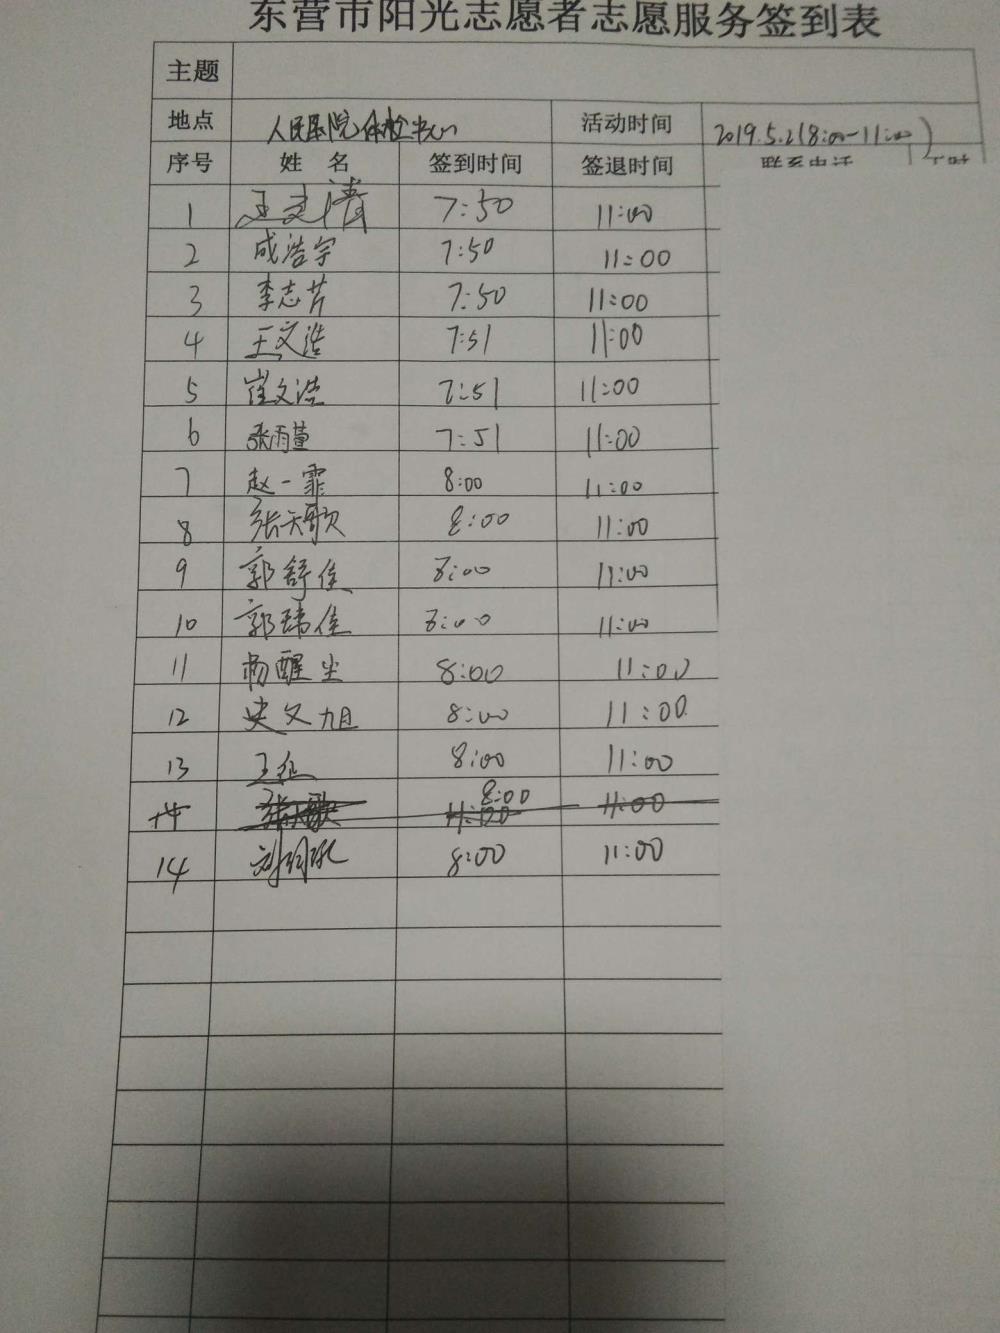 东营市阳光志愿者志愿服务签到表
主题
地点 人民医院体检中心 活动时间 2019.5.2(8:00-11:00)
序号 姓 名 签到时间 签退时间 联系电话 工时
1 王文清 7:50 11:00
2 成浩宇 7:50 11:00
3 李志芹 7:50 11:00
4 王文浩 7:51 11:00
5 崔文浩 7:51 11:00
6 张雨萱 7:51 11:00
7 赵一霏 8:00 11:00
8 张天歌 8:00 11:00
9 郭舒佳 8:00 11:00
10 郭玮佳 8:00 11:00
11 杨醒尘 8:00 11:00
12 史文旭 8:00 11:00
13 王 8:00 11:00
14 张天歌 11:00 8:00 11:00
14 刘 8:00 11:00